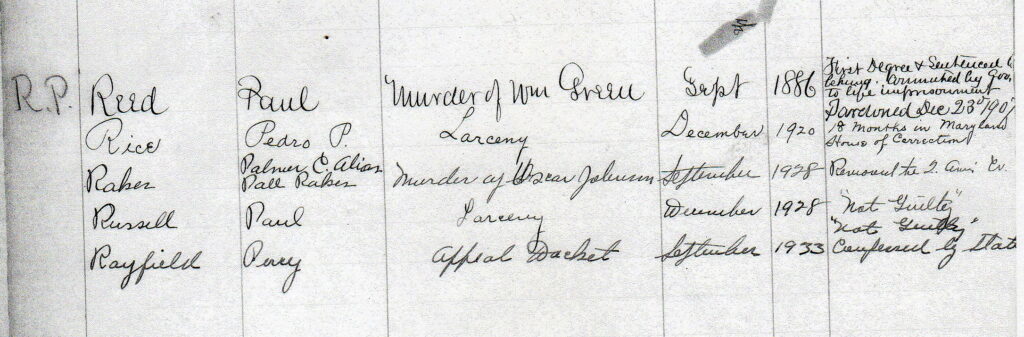 R.P. Reed Paul Murder of Wm Green Sept 1886 First Degree & Sentenced
commuted by Gov.
to life imprisonment
Pardoned Dec 23
Rice Pedro P. Larceny December 1920 18 Months in Maryland
House of Correction
Palmer C. Alias
Raker Pall Raker Murder of Oscar Johnson September 1928 Removed to
Russell Paul Larceny December 1928 "Not Guilty"
"Not Guilty"
Rayfield Percy Appeal Docket September 1933 Confessed by State